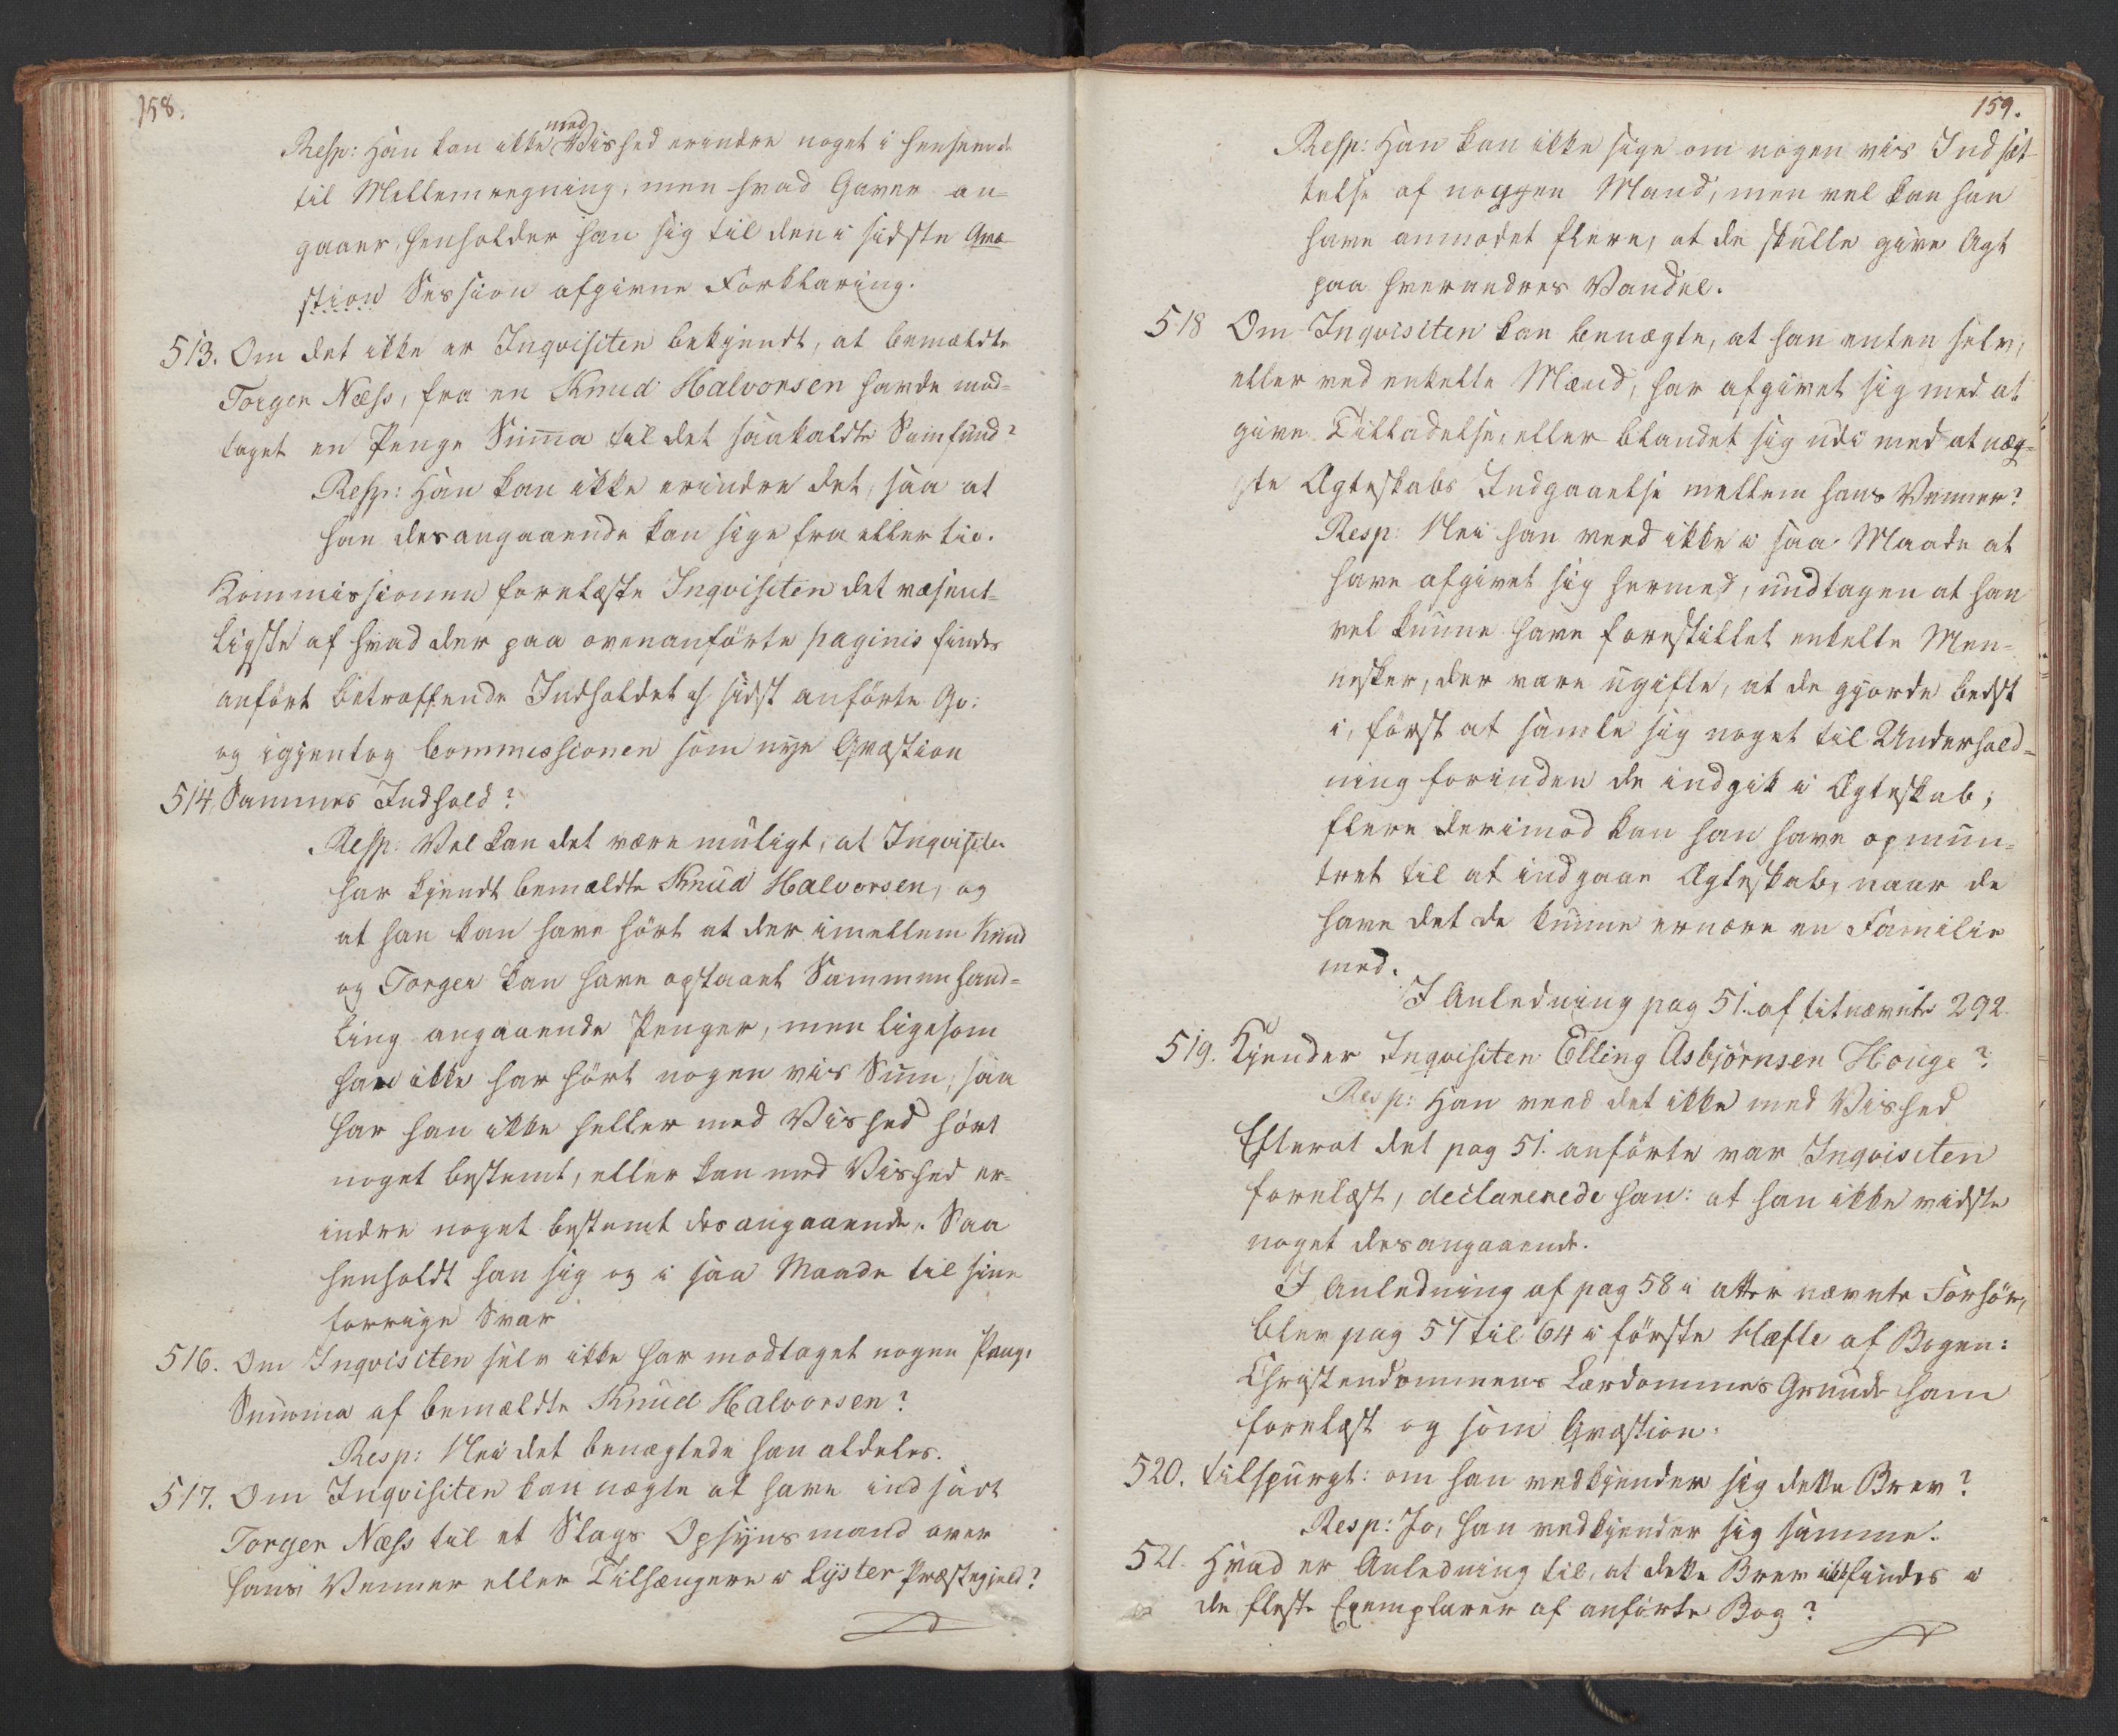 158.
Resp: Han kan ikke med Vished erindre noget i Henseende
til Mellemregning, men hvad Gaver an-
gaaer, henholder han sig til den i sidste Qvæ-
stion Session afgivne Forklaring.
513. Om det ikke er Inqvisiten bekjendt, at bemældte
Torger Næss, fra en Knud Halvorsen havde mod-
taget en Penge Suma til det saakaldte Samfund?
Resp: Han kan ikke erindre det, saa at
han desangaaende kan sige fra eller til.
Kommissionen forelæste Inqvisiten det væsent-
ligste af hvad der paa ovenanförte paginis findes
anfört betræffende Indholdet af sidst anförte Qv:
og igjentog Commissionen som nye Qvæstion
514. Sammes Indhold?
Resp: Vel kan det være muligt, at Inqvisiten
har kjendt bemældte Knud Halvorsen, og
at han kan have hört at der imellem Knud
og Torger kan have opstaaet Sammenhand-
ling angaaende Penger, men ligesom
han ikke har hört nogen vis Sum, saa
har han ikke heller med Vished hört
noget bestemt, eller kan med Vished er-
indre noget bestemt desangaaende. Saa
henholdt han sig og i saa Maade til sine
forrige Svar
516. Om Inqvisiten selv ikke har modtaget nogen Penge
Summa af bemældte Knud Halvorsen?
Resp: Nei det benægtede han aldeles.
517. Om Inqvisiten kan nægte at have indsadt
Torger Næss til et Slags Opsynsmand over
hans Venner eller Tilhængere i Lyster Præstegjeld?
159.
Resp: Han kan ikke sige om nogen vis Indsæt-
telse af noggen Mand, men vel kan han
have anmodet flere, at de skulle give Agt
paa hverandres Vandel.
518 Om Inqvisiten kan benægte, at han enten selv,
eller ved enkelte Mænd, har afgivet sig med at
give Tilladelse, eller blandet sig udi med at næg-
gte Ægteskabs Indgaaelse mellem hans Venner?
Resp: Nei han veed ikke i saa Maade at
have afgivet sig hermed, undtagen at han
vel kunne have forestillet enkelte Men-
nesker, der vare ugifte, at de gjorde bedst
i, först at samle sig noget til Underhold-
ning forinden de indgik i Ægteskab;
flere derimod kan han have opmun-
tret til at indgaae Ægteskab, naar de
have det de kunne ernære en Familie
med.
I Anledning pag 51. af titnævnte 292.
519. Kjender Inqvisiten Elling Asbjörnsen Houge?
Resp: Han veed det ikke med Vished
Efterat det pag 51. anförte var Inqvisiten
forelæst, declarerede han: at han ikke vidste
noget desangaaende.
I Anledning af pag 58 i atter nævnte Forhör,
blev pag 57 til 64 i förste Hæfte af Bogen:
Christendommens Lærdommes Grunde ham
forelæst og som Qvæstion.
520. tilspurgt: om han vedkjender sig dette Brev?
Resp: Jo, han vedkjender sig samme.
521. Hvad er Anledning til, at dette Brev ikke findes i
de fleste Exemplarer af anförte Bog?